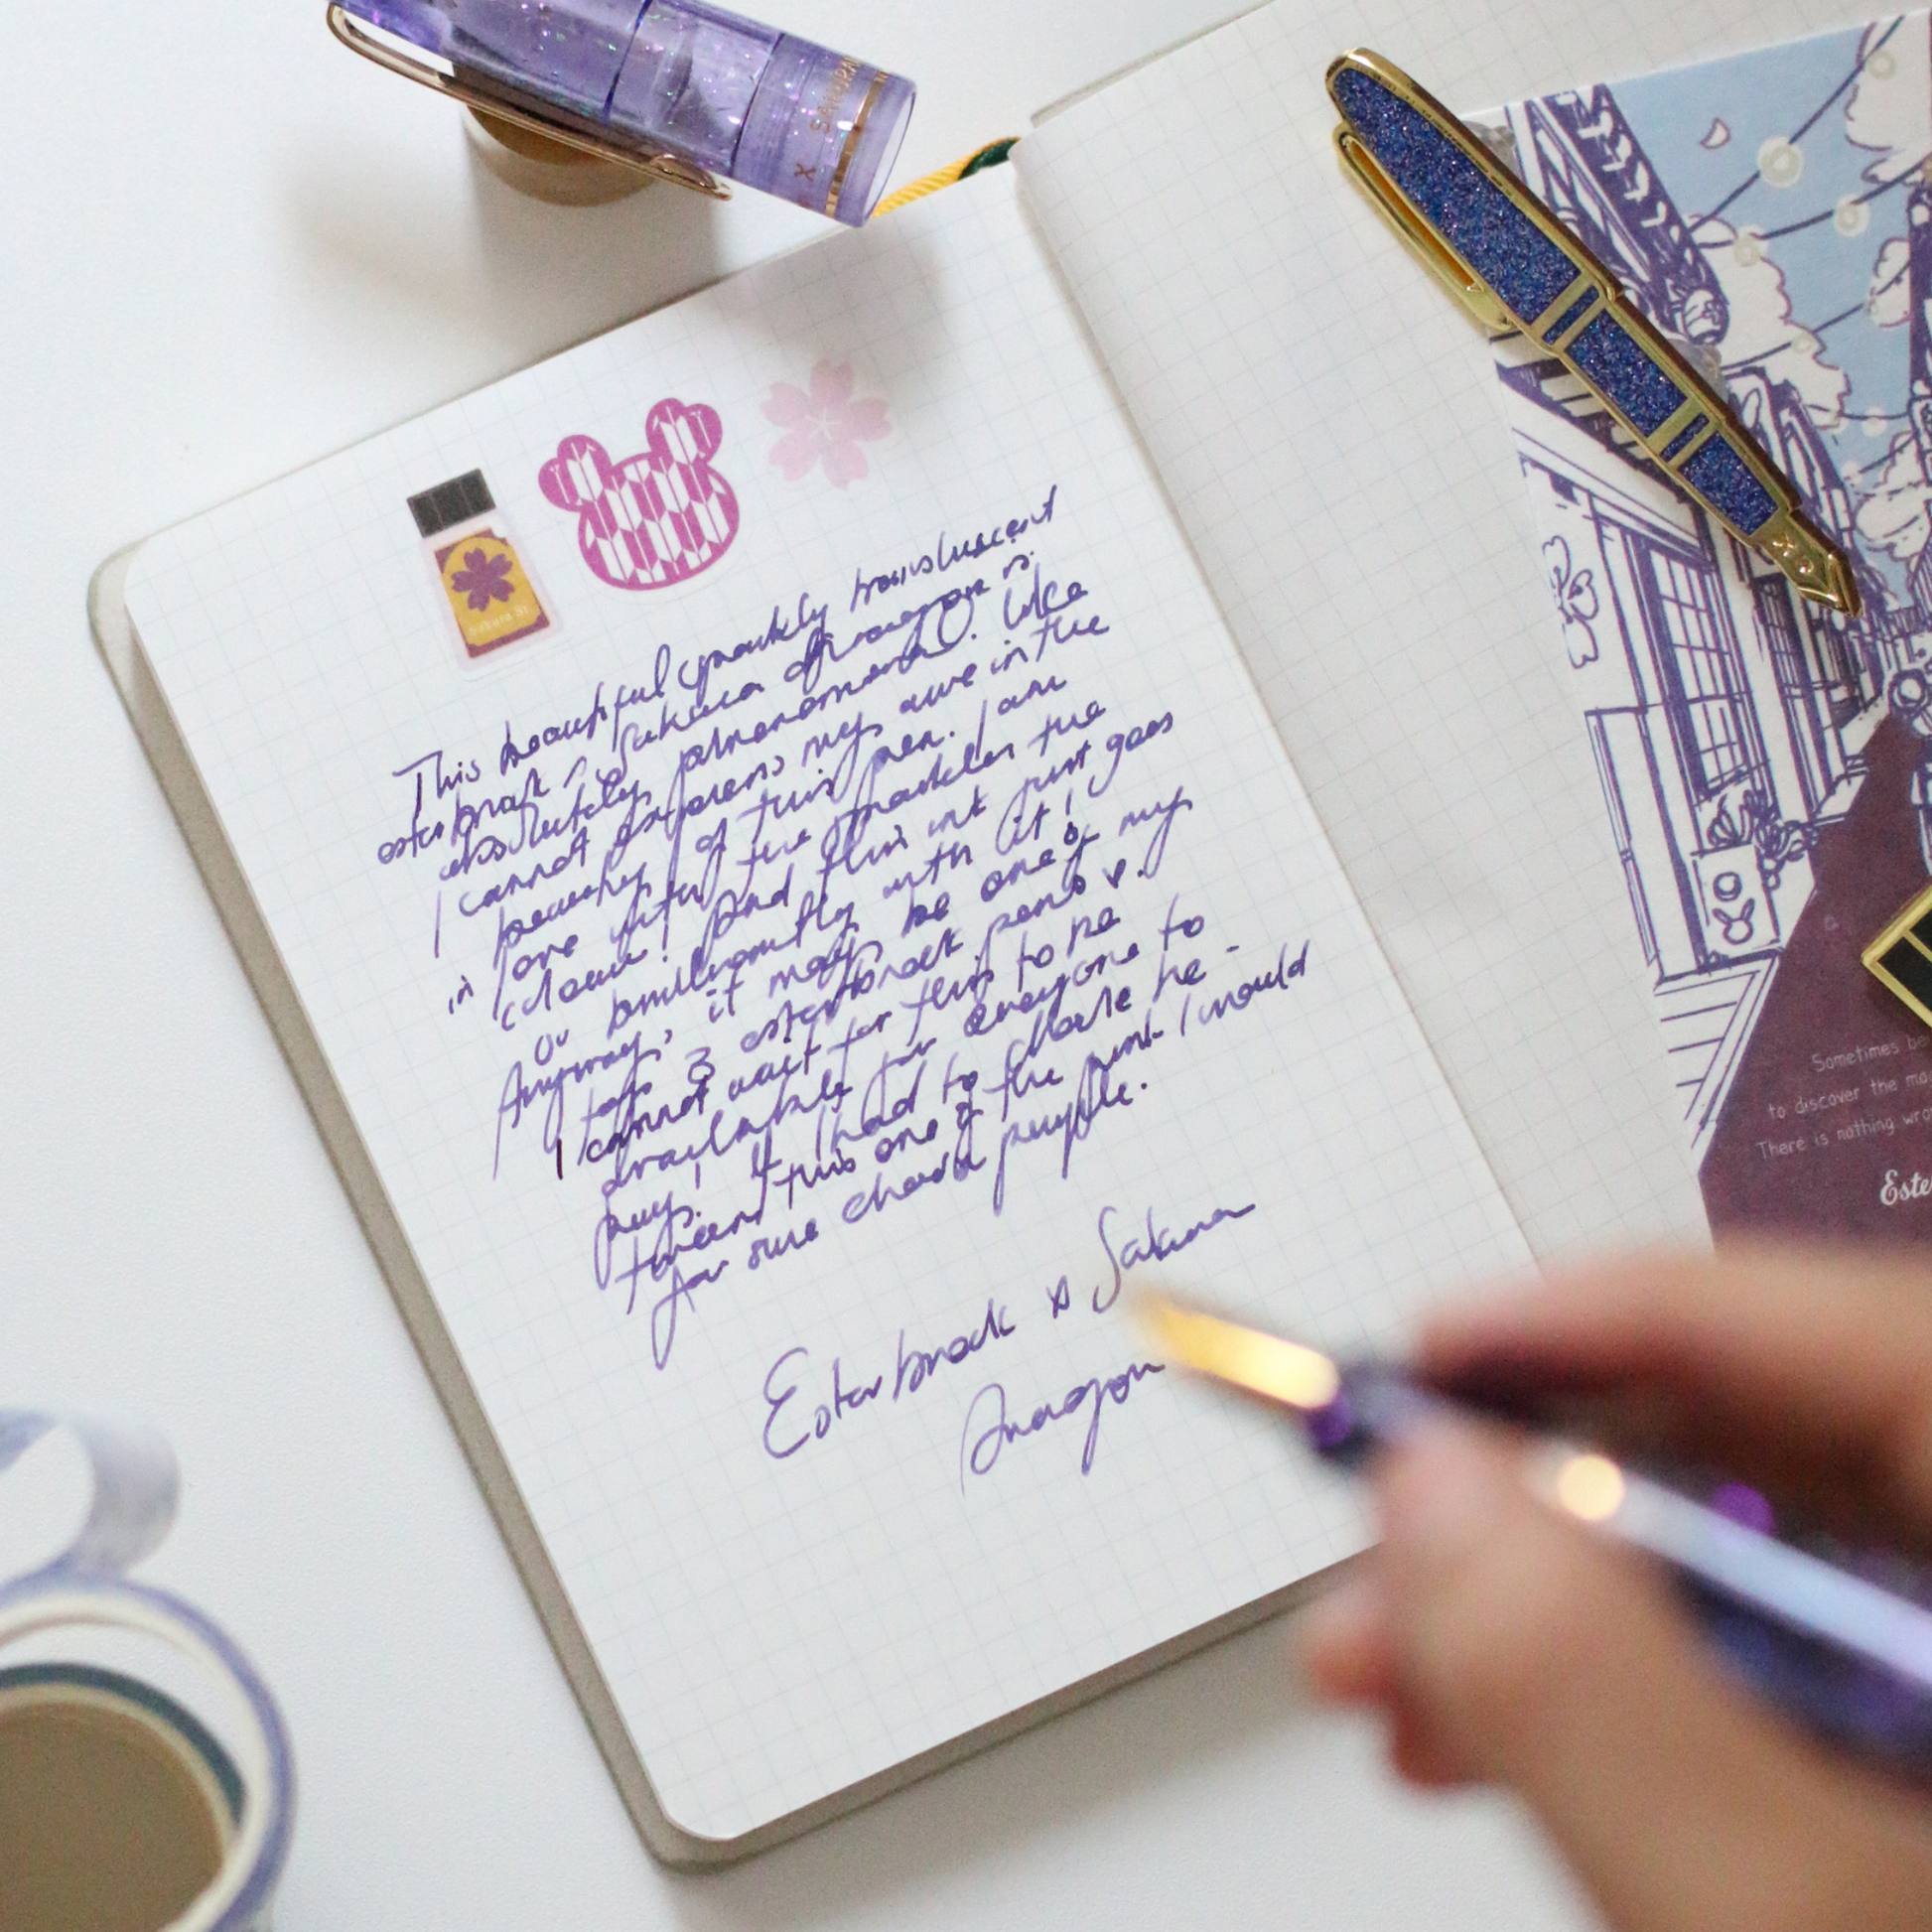 SAKURA
X
Sakura St
This beautiful sparkly translucent
esterbrook x Sakura dragon is
absolutely phenomenal. Like
I cannot express my awe in the
beauty of this pen. I am
in love with the sparkles the
colour! And this ink just goes
so brilliantly with it!
Anyway, it may be one of my
top 3 esterbrook pens ♥.
I cannot wait for this to be
available for everyone to
buy! If I had to choose be-
tween this one & the pink I would
for sure choose purple.
Esterbrook x Sakura
Sometimes be
to discover the ma
There is nothing wro
Este